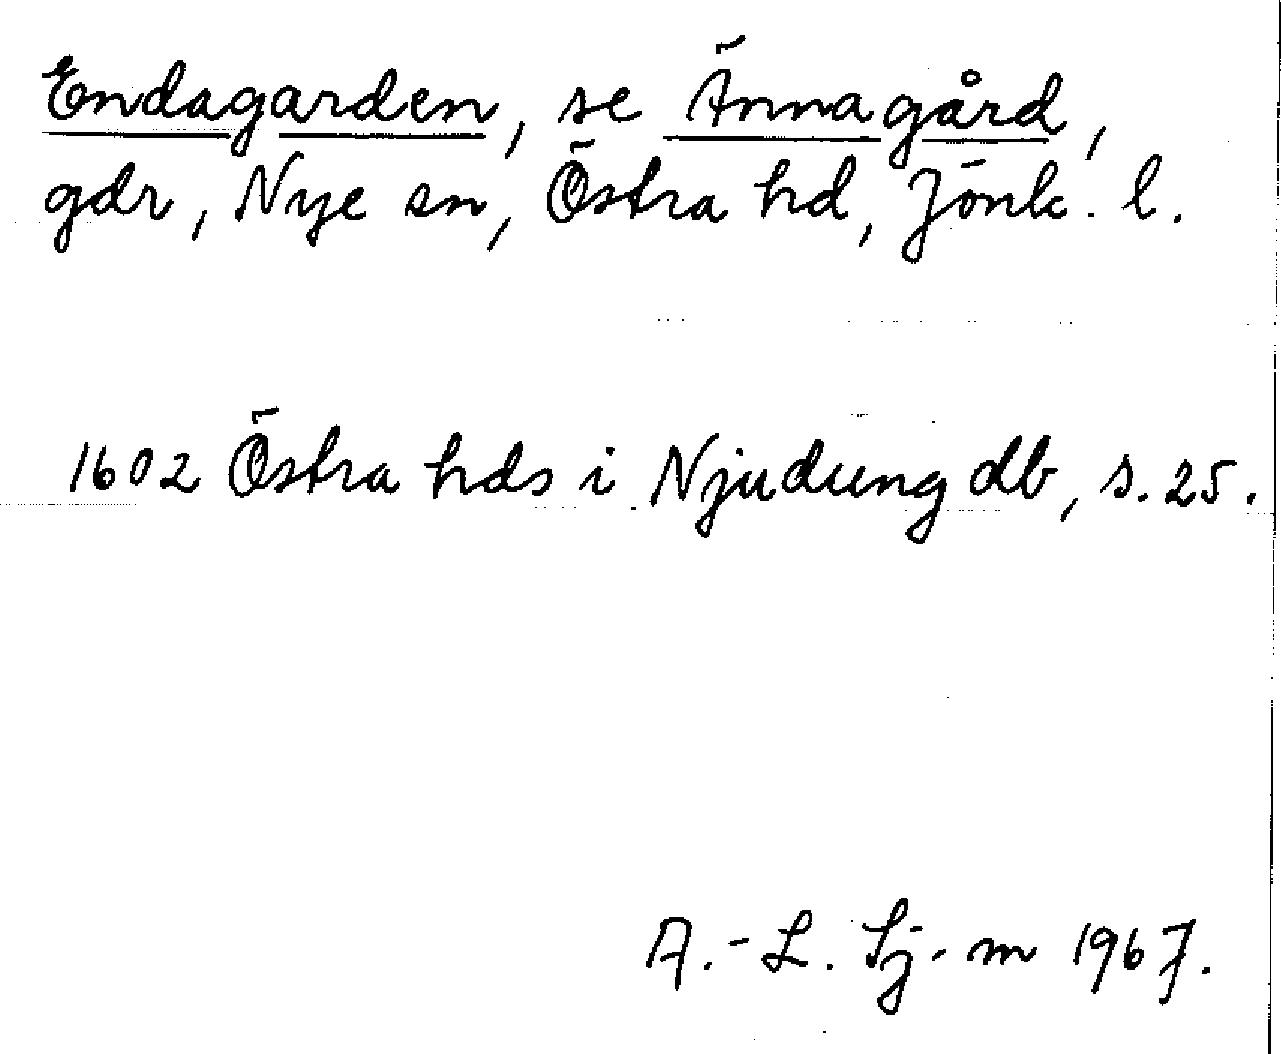 Endagarden, se Ännagård,
gdr, Nye sn, Östra hd, Jönk. l.
1602 Östra hds i Njudung db, s. 25.
A.-L. Sj-m 1967.